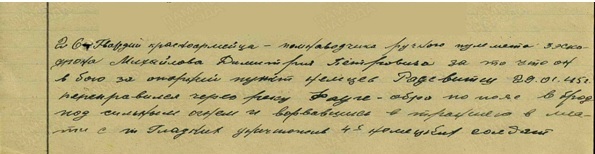 2 6. Гвардии красноармейца - помнаводчика ручного пулемета эска-
дрона Михайлова Димитрия Петровича за то что он
в бою за опорный пункт немцев Радевитц 29.01.45г.
переправился через реку Фауле-обра по пояс в брод
под сильным огнем и ворвавшись в траншею в ме-
сте с т. Гладких уничтожил 45 немецких солдат